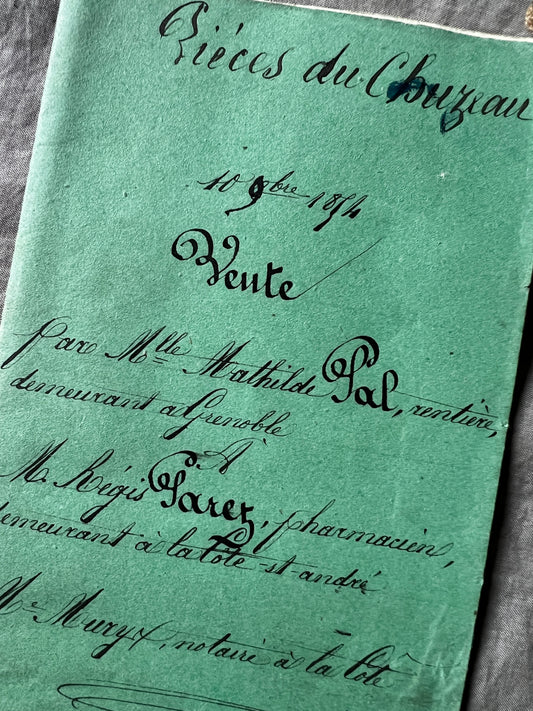 Pièces du Chuzeau
10 9bre 1874
Vente
par Mlle Mathilde Pal, rentière,
demeurant a Grenoble
A
M. Régis Parez, pharmacien,
demeurant à la Côte st andré
Me Muryx, notaire à la Côte